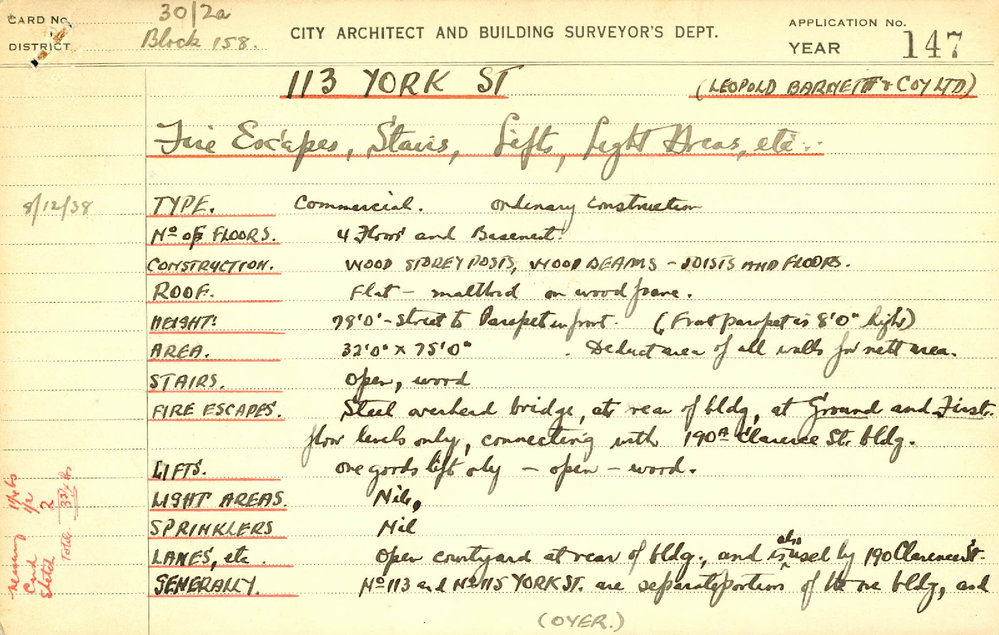 CARD No. 30/2a
DISTRICT Block 158.
CITY ARCHITECT AND BUILDING SURVEYOR'S DEPT.
APPLICATION No.
YEAR 147
113 YORK ST (LEOPOLD BARNETT & COY LTD)
Fire Escapes, Stairs, Lifts, Light Areas, etc.
8/12/38 TYPE. Commercial. Ordinary Construction
No OF FLOORS. 4 Floors and Basement.
CONSTRUCTION. WOOD STOREY POSTS, WOOD BEAMS - JOISTS AND FLOORS.
ROOF. Flat - malthoid on wood frame.
HEIGHT. 78'0" - Street to Parapet in front. (Front parapet is 8'0" high)
AREA. 32'0" x 75'0". Deduct area of all walls for nett area.
STAIRS. Open, wood
FIRE ESCAPES. Steel overhead bridge, at rear of bldg, at Ground and First
floor levels only, connecting with 190A Clarence St. bldg.
LIFTS. one goods lift only - open - wood.
LIGHT AREAS. Nil.
SPRINKLERS Nil
LANES, etc. Open courtyard at rear of bldg., and is also used by 190 Clarence St.
GENERALLY. No 113 and No 115 YORK ST. are separate portions of the one bldg, and
(OVER.)
Card
Sketch 2
Total 3½ hrs